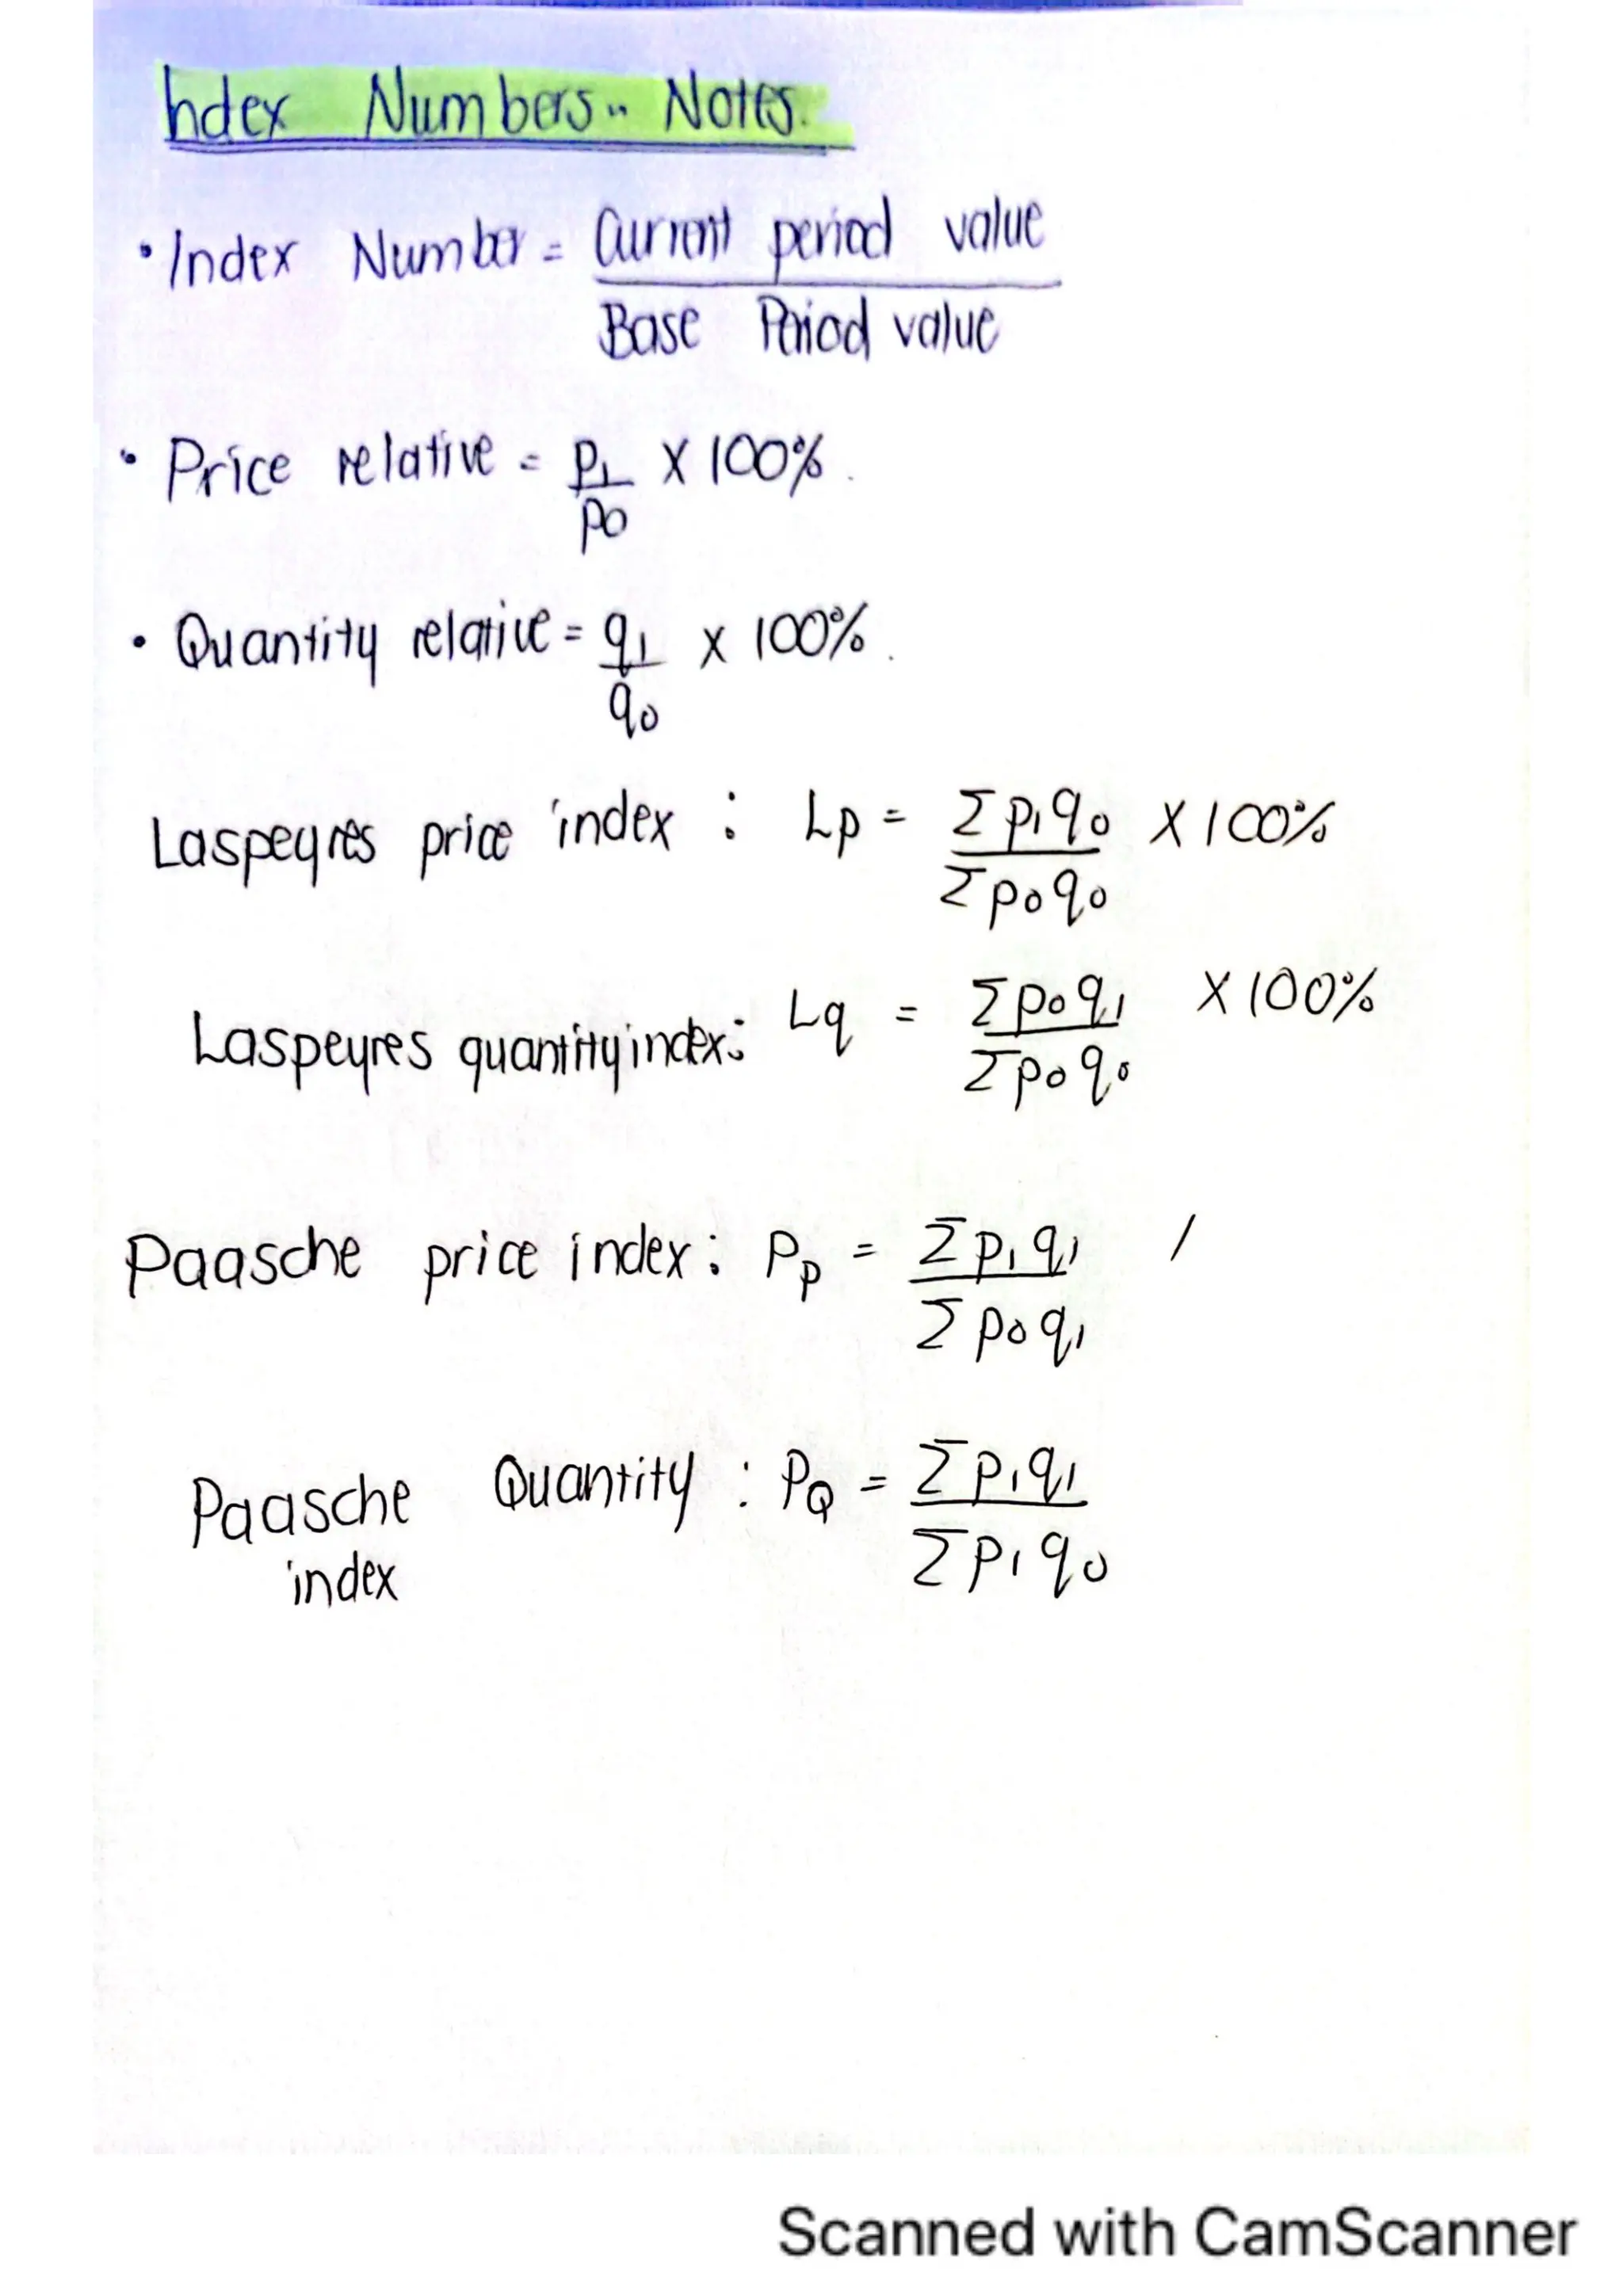 Index Numbers.. Notes.
• Index Number = Current period value
Base Period value
• Price relative = p1 X 100%.
p0
• Quantity relative = q1 x 100%.
q0
Laspeyres price index : Lp = Σ p1q0 X 100%
Σ p0q0
Laspeyres quantity index: Lq = Σ p0q1 X 100%
Σ p0q0
Paasche price index : Pp = Σ p1q1 /
Σ p0q1
Paasche Quantity : PQ = Σ p1q1
index Σ p1q0
Scanned with CamScanner